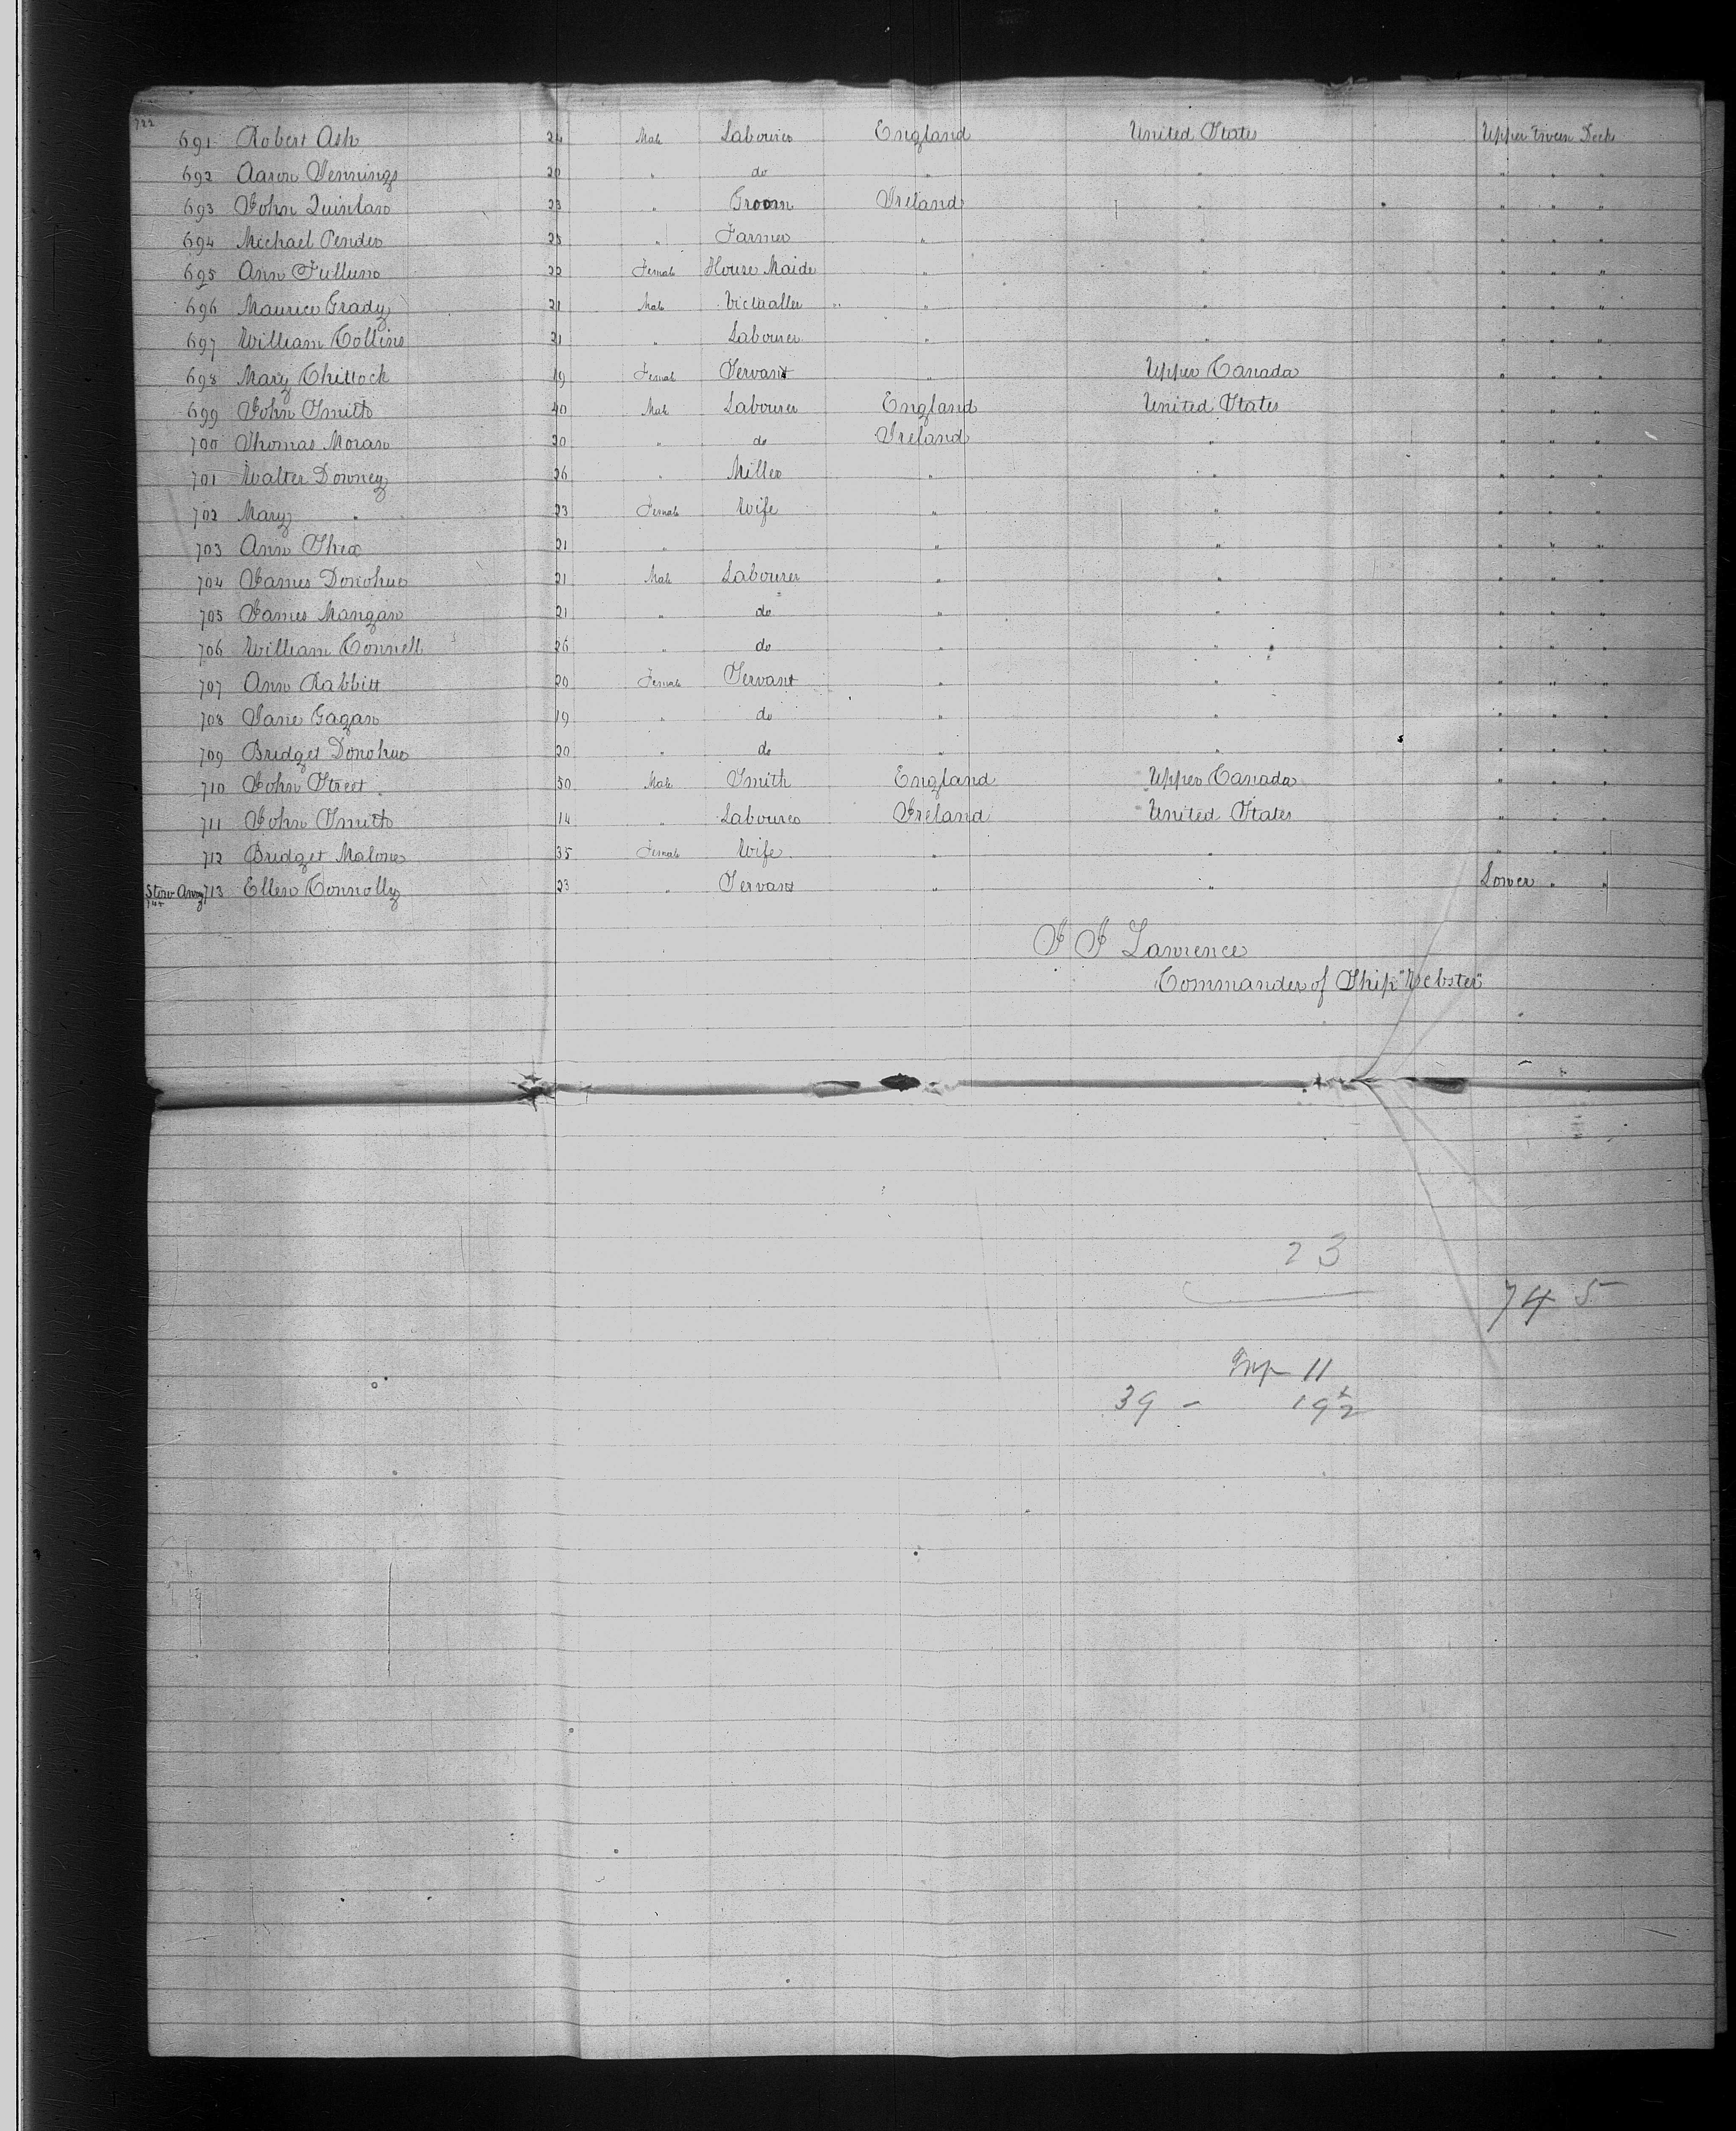 722
691 Robert Ash 24 Male Labourer England United States Upper Tween Deck
692 Aaron Jennings 20 " do " " " " "
693 John Quinlan 23 " Groom Ireland " " " "
694 Michael Pender 25 " Farmer " " " " "
695 Ann 22 Female House Maid " " " " "
696 Maurice Grady 21 Male Victualler " " " " "
697 William Collins 21 " Labourer " " " " "
698 Mary Chittock 19 Female Servant " Upper Canada " " "
699 John Smith 40 Male Labourer England United States " " "
700 Thomas Moran 30 " do Ireland " " " "
701 Walter Downey 26 " Miller " " " " "
702 Mary " 23 Female Wife " " " " "
703 Ann Shea 21 " " " " " "
704 James Donohue 21 Male Labourer " " " " "
705 James Mangan 21 " do " " " " "
706 William Connell 26 " do " " " " "
707 Ann Rabbitt 20 Female Servant " " " " "
708 Jane Gagan 19 " do " " " " "
709 Bridget Donohue 20 " do " " " " "
710 John Street 50 Male Smith England Upper Canada " " "
711 John Smith 14 " Labourer Ireland United States " " "
712 Bridget Malone 35 Female Wife " " " " "
Stow Away 713 Ellen Connolly 23 " Servant " " Lower " "
J J Lawrence
Commander of Ship "Webster"
23
745
11
39 - 19½